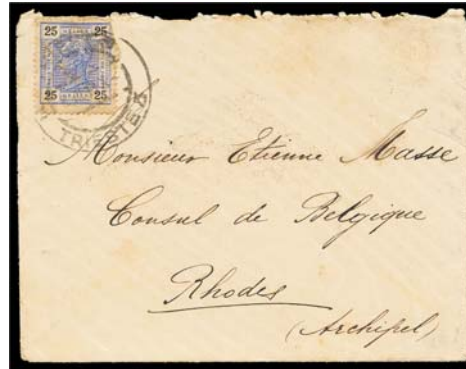 25 25
25 25
TRIESTE
Monsieur Etienne Masse
Consul de Belgique
Rhodes
(Archipel)